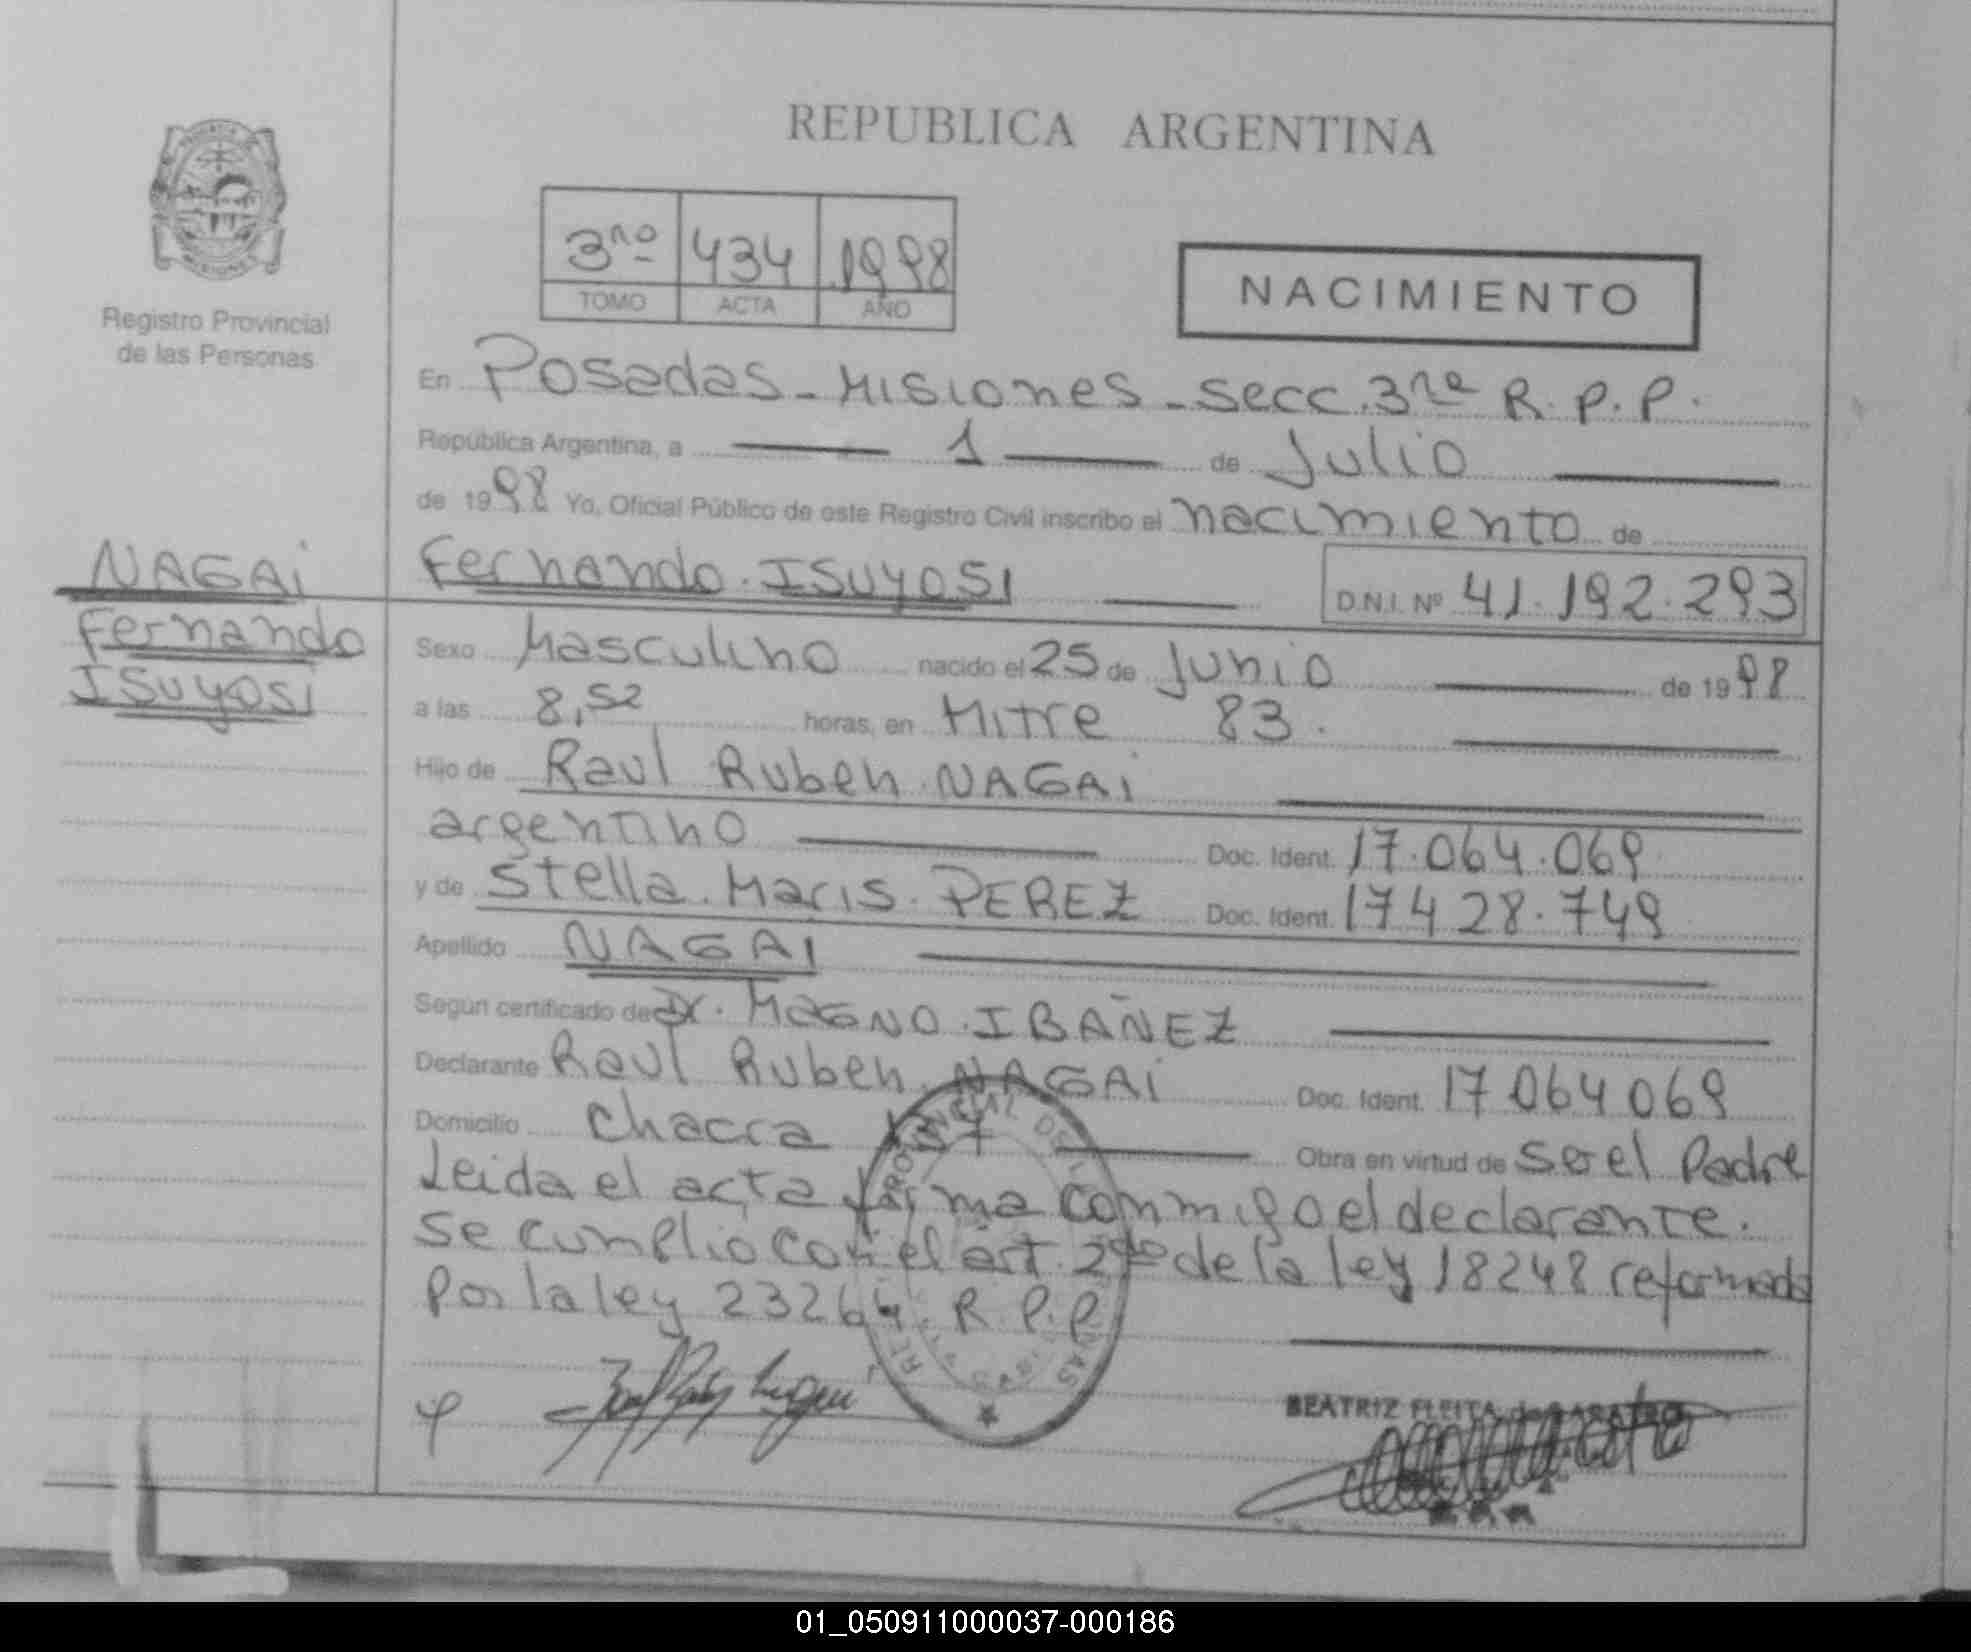 REPUBLICA ARGENTINA
3ro 434 1998
TOMO ACTA AÑO
NACIMIENTO
Registro Provincial
de las Personas
En Posadas - Misiones - Secc. 3ra R. P. P.
República Argentina, a 1 de Julio
de 1998 Yo, Oficial Público de este Registro Civil inscribo el nacimiento de
NAGAi
Fernando
ISUYOSi
Fernando. ISUYOSI D.N.I. Nº 41.192.293
Sexo Masculino nacido el 25 de Junio de 1998
a las 8,52 horas, en Mitre 83.
Hijo de Raul Ruben NAGAi
argentino Doc. Ident. 17.064.069
y de Stella. Maris. PEREZ Doc. Ident. 17428.749
Apellido NAGAI
Según certificado de Dr. MAGNO. IBAÑEZ
Declarante Raul Ruben. NAGAi Doc. Ident. 17064069
Domicilio Chacra 137 Obra en virtud de Ser el Padre
Leida el acta firma conmigo el declarante.
Se cumplio con el art. 2do de la ley 18248 reformada
Por la ley 23264. R. P. P.
BEATRIZ FLEITA de
01_050911000037-000186